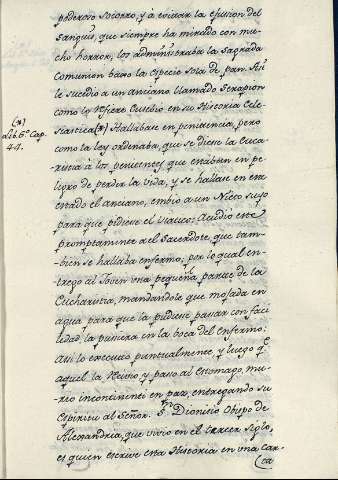 poderoso socorro, y à evitar la efusion del
Sangui͂s, que siempre ha mirado con mu-
cho horror, los administraba la Sagrada
Comunion baxo la especie sola de pan. Asi
le sucedio a un anciano llamado Serapion
como lo refiere Eusebio en su Historia Ecle-
siastica(*) Hallabase en penitencia, pero
(*)
Lib. 6º Cap.
44.
como la ley ordenaba, que se diese la Euca-
ristia à los penitentes que estaban en pe-
ligro de perder la vida, y se hallase en este
estado el anciano, embio a un Nieto suyo
para que pidiese el viatico: Acudio este
promptamente a el Sacerdote, que tam-
bien se hallaba enfermo; por lo qual en-
trego al Joven una pequeña parte de la
Eucharistia, mandandole que mojada en
agua para que la pudiese pasar con faci-
lidad, la pusiera en la boca del enfermo:
Asi lo executo puntualmente, y luego qe
aquel la recivio y paso al estomago, mu-
rio incontinenti en paz, entregando su
Espiritu al Señor. Sn Dionisio Obispo de
Alexandria, que vivio en el tercer siglo,
es quien escrive esta Historia en una car-
ta